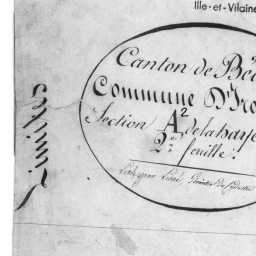 Ille-et-Vilaine
Canton de Bé
Commune D'Iro
Section A2 de la haye
2e feuille.
Limites